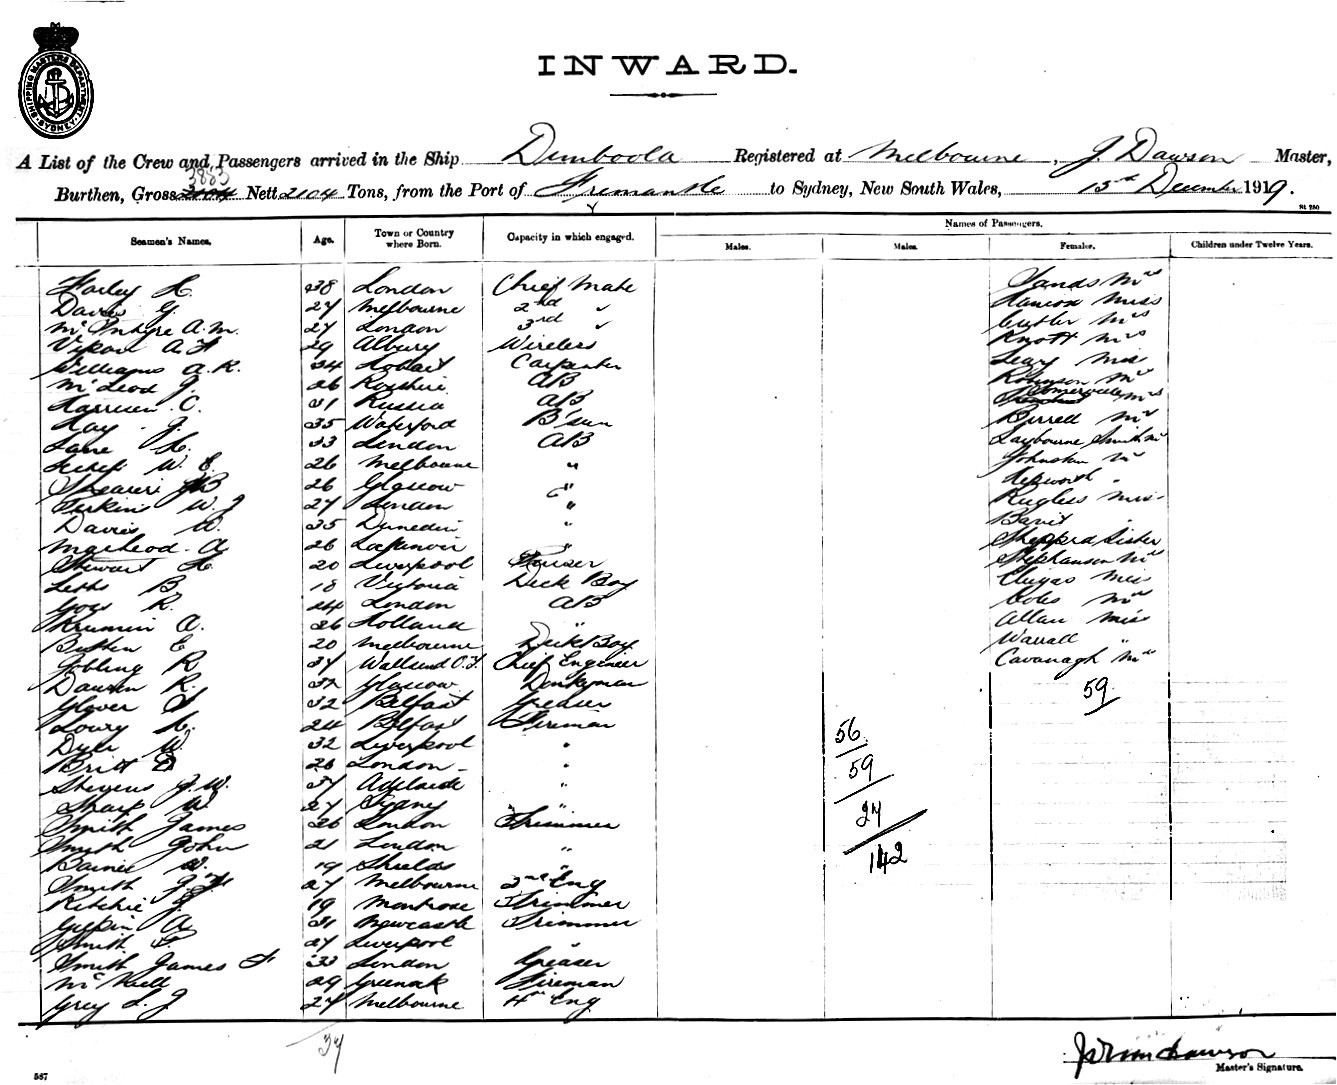 SHIPPING MASTERS DEPARTMENT SYDNEY
INWARD.
A List of the Crew and Passengers arrived in the Ship Dimboola Registered at Melbourne, J. Dawson Master,
3883
Burthen, Gross Nett 2104 Tons, from the Port of Fremantle to Sydney, New South Wales, 15th December 1919.
St 250
Names of Passengers.
Seamen's Names. Age. Town or Country where Born. Capacity in which engaged. Males. Males. Females. Children under Twelve Years.
Farley H. 38 London Chief Mate Sands Mrs
Davies G. 27 Melbourne 2nd " Hancox Miss
McIntyre A.M. 27 London 3rd " Cutler Mrs
A. 29 Albury Wireless Knott Mrs
Williams A.R. 24 Hobart Carpenter Leary Miss
McLeod J. 26 Rosshire AB Robinson Mrs
C. 31 Russia AB Somerville Mrs
Hay J. 35 Waterford B'sun Birrell Mrs
Lane H. 33 London AB Laybourne Smith Mrs
W. E. 26 Melbourne " Johnston Mrs
26 Glascow " Hepworth "
Perkins W. J 27 London " Rugless Miss
Davies W. 35 Dunedin "
A 26 " Sheppard Sister
Stewart H. 20 Liverpool Stephenson Mrs
B 18 Victoria Deck Boy Miss
R. 24 London AB Coles Mrs
A. 26 Holland " Allan Miss
E 20 Melbourne Deck Boy Warrall "
Gobling R 37 Wallsend O.T. Chief Engineer Cavanagh Mrs
Dawson R. 32 Glascow Donkyman 59
Glover 32 Belfast Greaser
Lowry H. 24 Belfast Fireman 56
Dyer W. 32 Liverpool "
Britt E 26 London "
59
Stevens J.W. 37 Adelaide "
Sharp W 27 Sydney "
27
Smith James 26 London Trimmer
Smyth John 21 London "
142
Barnes W. 19 Shields "
Smith J. 27 Melbourne 2nd Eng
Ritchie J. 19 Montrose Trimmer
A 31 Newcastle Trimmer
Smith P. 27 Liverpool "
Smith James F 33 London Greaser
McNeill 29 Greenok Fireman
Grey L. J 27 Melbourne 4th Eng
37
Dawson
Master's Signature.
567